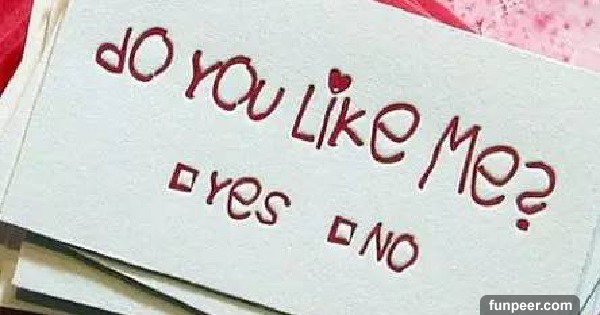 do you Like Me?
□ Yes □ NO
funpeer.com